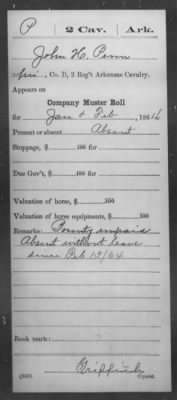 P 2 Cav. Ark.
John H. Penn
, Co. D, 2 Reg't Arkansas Cavalry.
Appears on
Company Muster Roll
for Jan & Feb, 1864
Present or absent Absent
Stoppage, $ 100 for
Due Gov't, $ 100 for
Valuation of horse, $ 100
Valuation of horse equipments, $ 100
Remarks: Bounty unpaid
Absent without leave
since Feb 13/64
Book mark:
(358) Griffith Copyist.